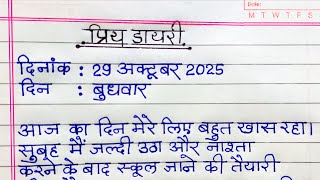 Date:
M T W T F S
प्रिय डायरी
दिनांक : 29 अक्टूबर 2025
दिन : बुधवार
आज का दिन मेरे लिए बहुत खास रहा।
सुबह मैं जल्दी उठा और नाश्ता
करने के बाद स्कूल जाने की तैयारी